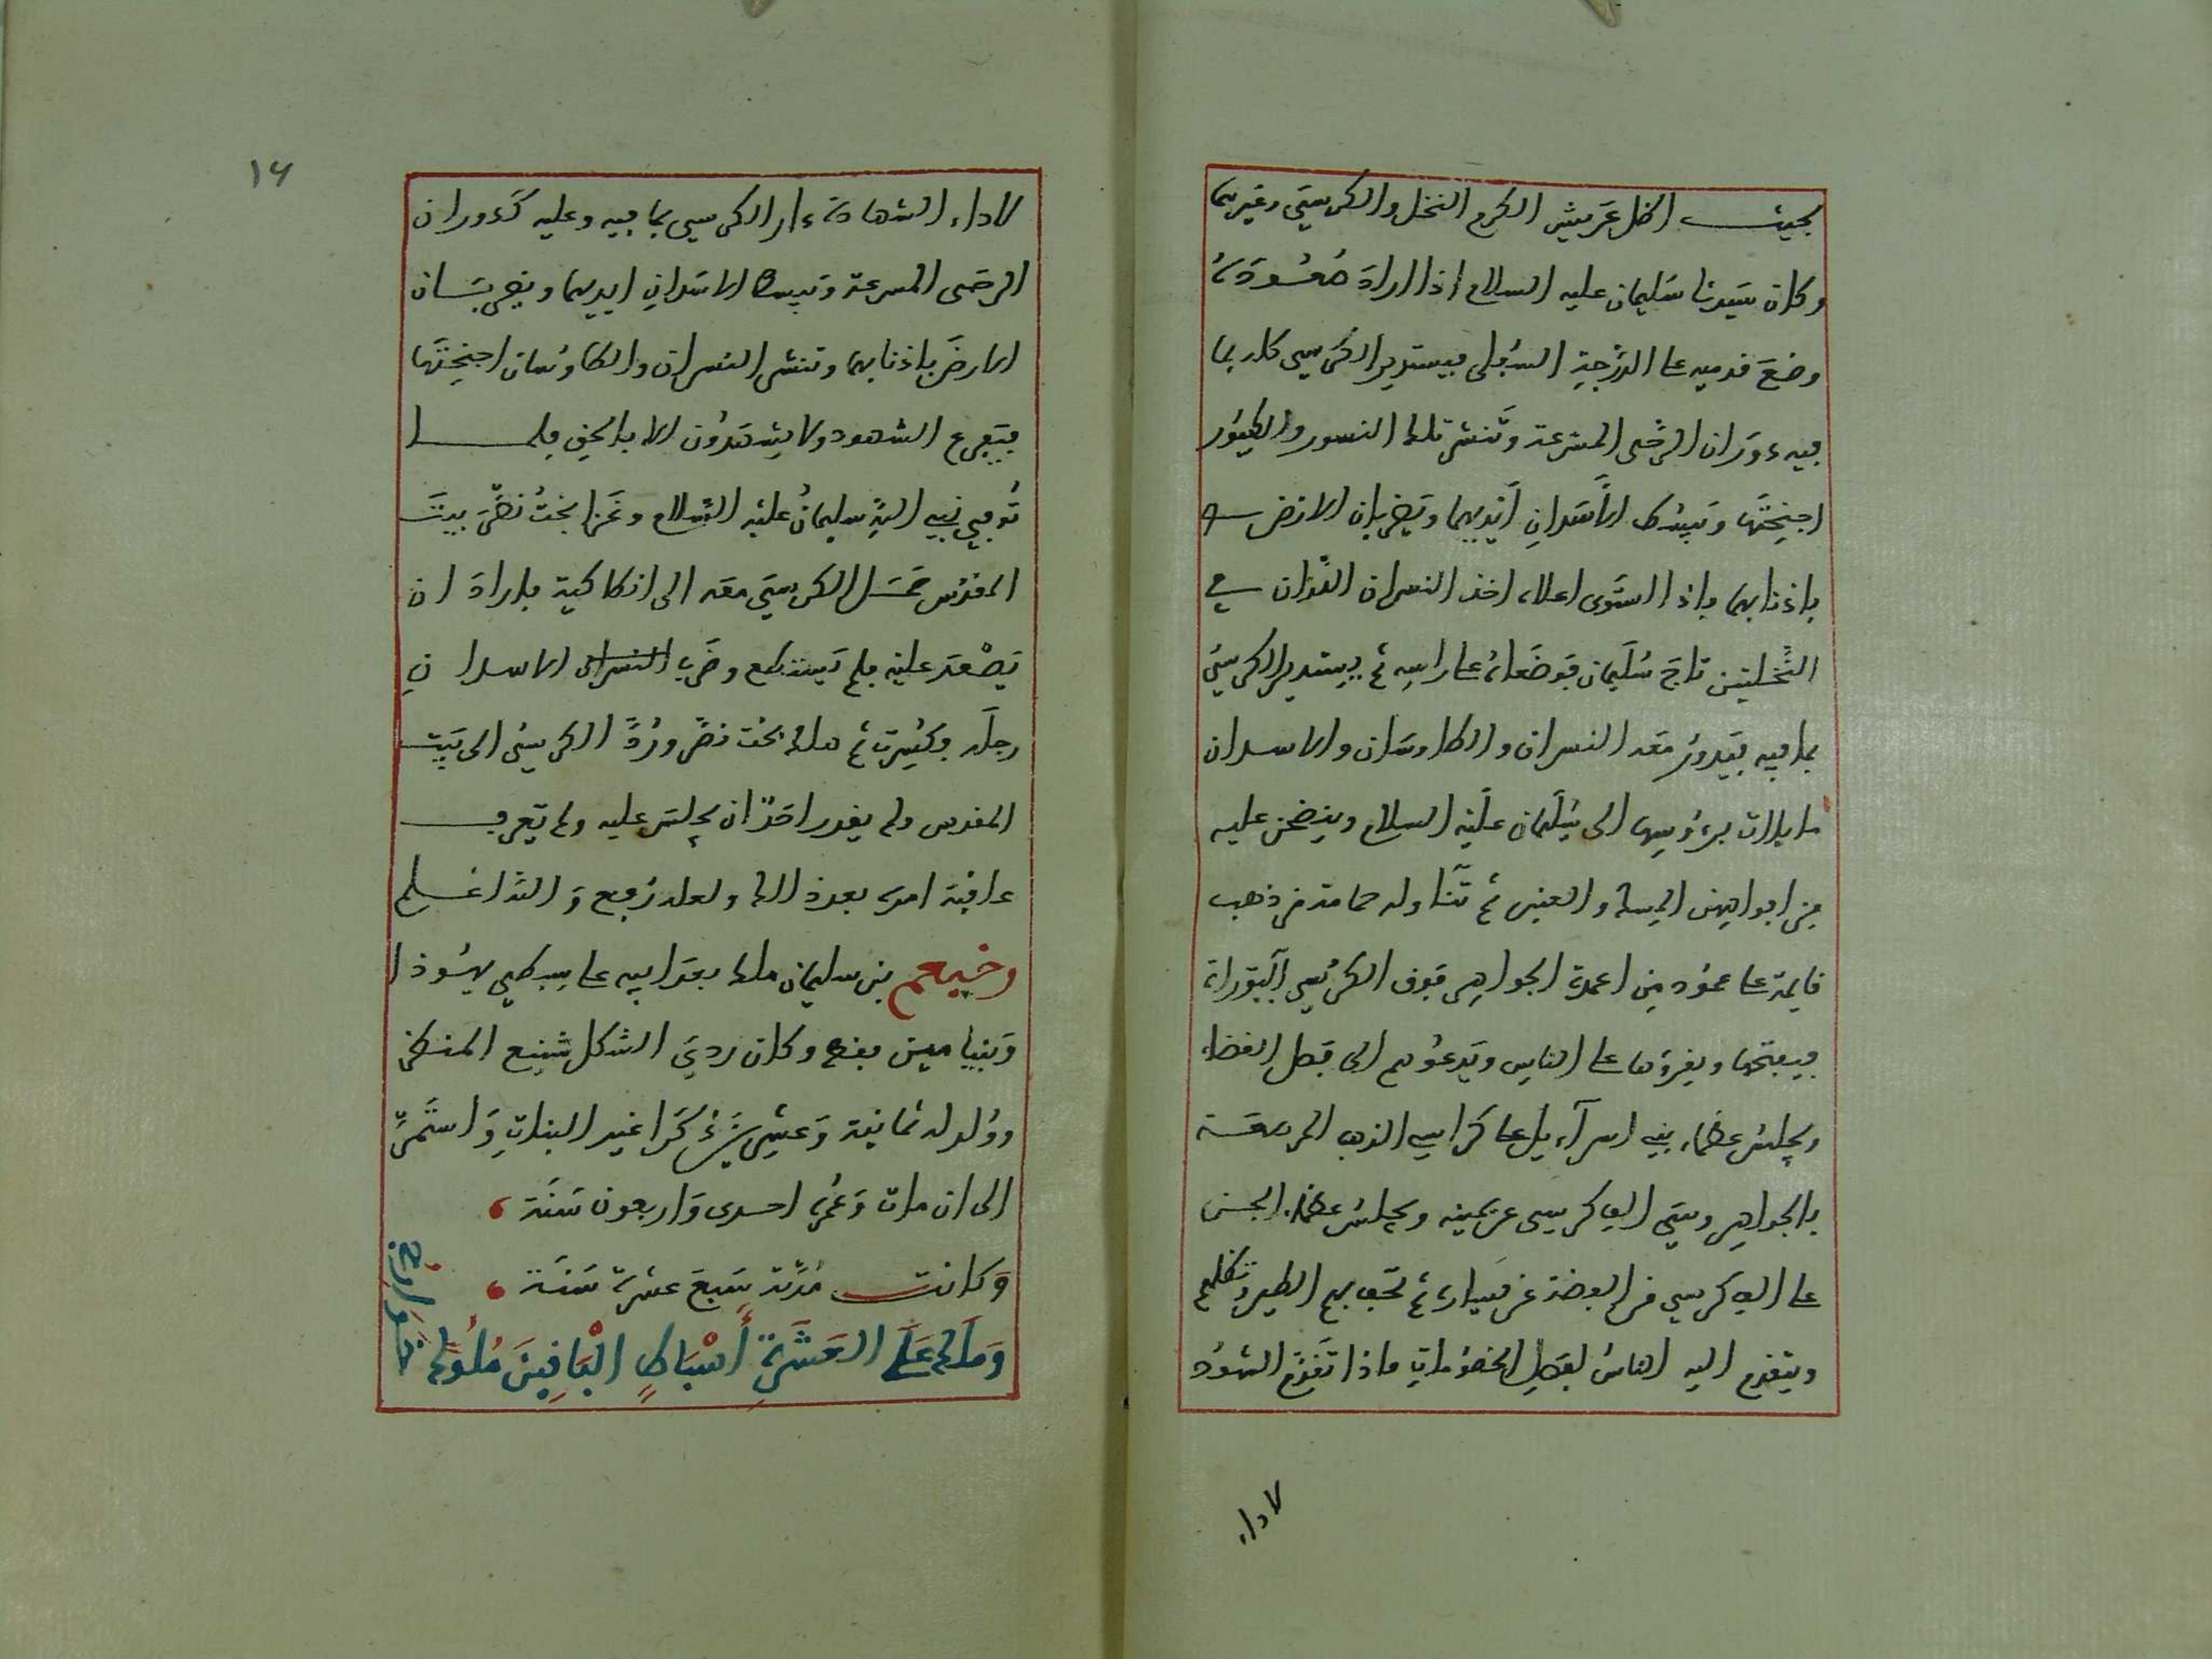 بحيث اظل عريش الكرم النخل والكرسي وغيرهما
وكان سيدنا سليمان عليه السلام اذا اراد صعوده
وضع قدميه على الدرجة السفلى فيستدير الكرسي كله بما
فيه دوران الرحى المسرعة وتنشر تلك النسور والطيور
اجنحتها ويبسط الاسدان ايديهما ويضربان الارض
باذنابهما فاذا استوى اعلاه اخذ النسران اللذان في
النخلتين تاج سليمان فوضعاه على راسه ثم يستدير الكرسي
بما فيه فيدور معه النسران والطاوسان والاسدان
مايلات برؤسها الى سليمان عليه السلام وينضحن عليه
من اجوافهن المسك والعنبر ثم تناوله حمامة من ذهب
قايمة على عمود من اعمدة الجواهر فوق الكرسي التوراة
فيفتحها ويقرؤها على الناس ويدعوهم الى فصل القضاء
ويجلس عظماء بني اسرآءيل على كراسي الذهب المرصعة
بالجواهر وهي الف كرسي عن يمينه ويجلس عظماء الجن
على الف كرسي من الفضة عن يساره ثم تحف بهم الطير وتظلهم
ويتقدم اليه الناس لفصل الخصومات فاذا تقدم الشهود
لاداء
١٦
لاداء الشهادة دار الكرسي بما فيه وعليه كدوران
الرحى المسرعة ويبسط الاسدان ايديهما ويضربان
الارض باذنابهما وتنشر النسران والطاوسان اجنحتها
فيفزع الشهود ولا يشهدون الا بالحق فلما
توفي نبي الله سليمان عليه السلام وغزا بخت نصر بيت
المقدس حمل الكرسي معه الى انطاكية فاراد ان
يصعد عليه فلم يستطع وضرب النسران الاسدان
رجله فكسرت ثم هلك بخت نصر ورد الكرسي الى بيت
المقدس ولم يقدر احد ان يجلس عليه ولم يعرف
عاقبة امره بعد ذلك ولعله رفع والله اعلم
ورحبعم بن سليمان ملك بعد ابيه على سبطي يهوذا
وبنيامين فقط وكان ردي الشكل شنيع المنظر
وولد له ثمانية وعشرين ذكرا غير البنات واستمر
الى ان مات وعمره احدى واربعون سنة
وكانت مدته سبع عشرة سنة
وملك على العشرة أسباط الباقين ملوك